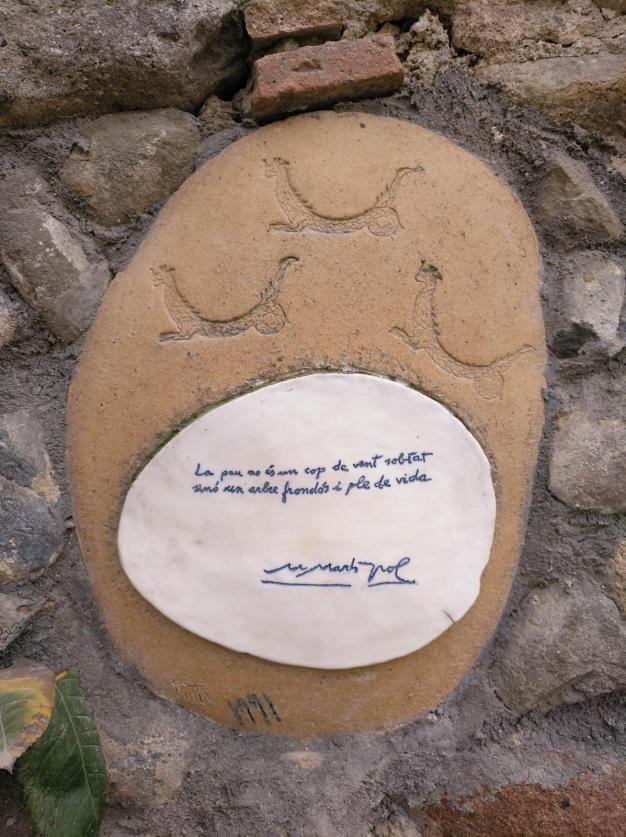 La pau no és un cop de vent sobtat
sinó un arbre frondós i ple de vida
M Martí Pol
1991